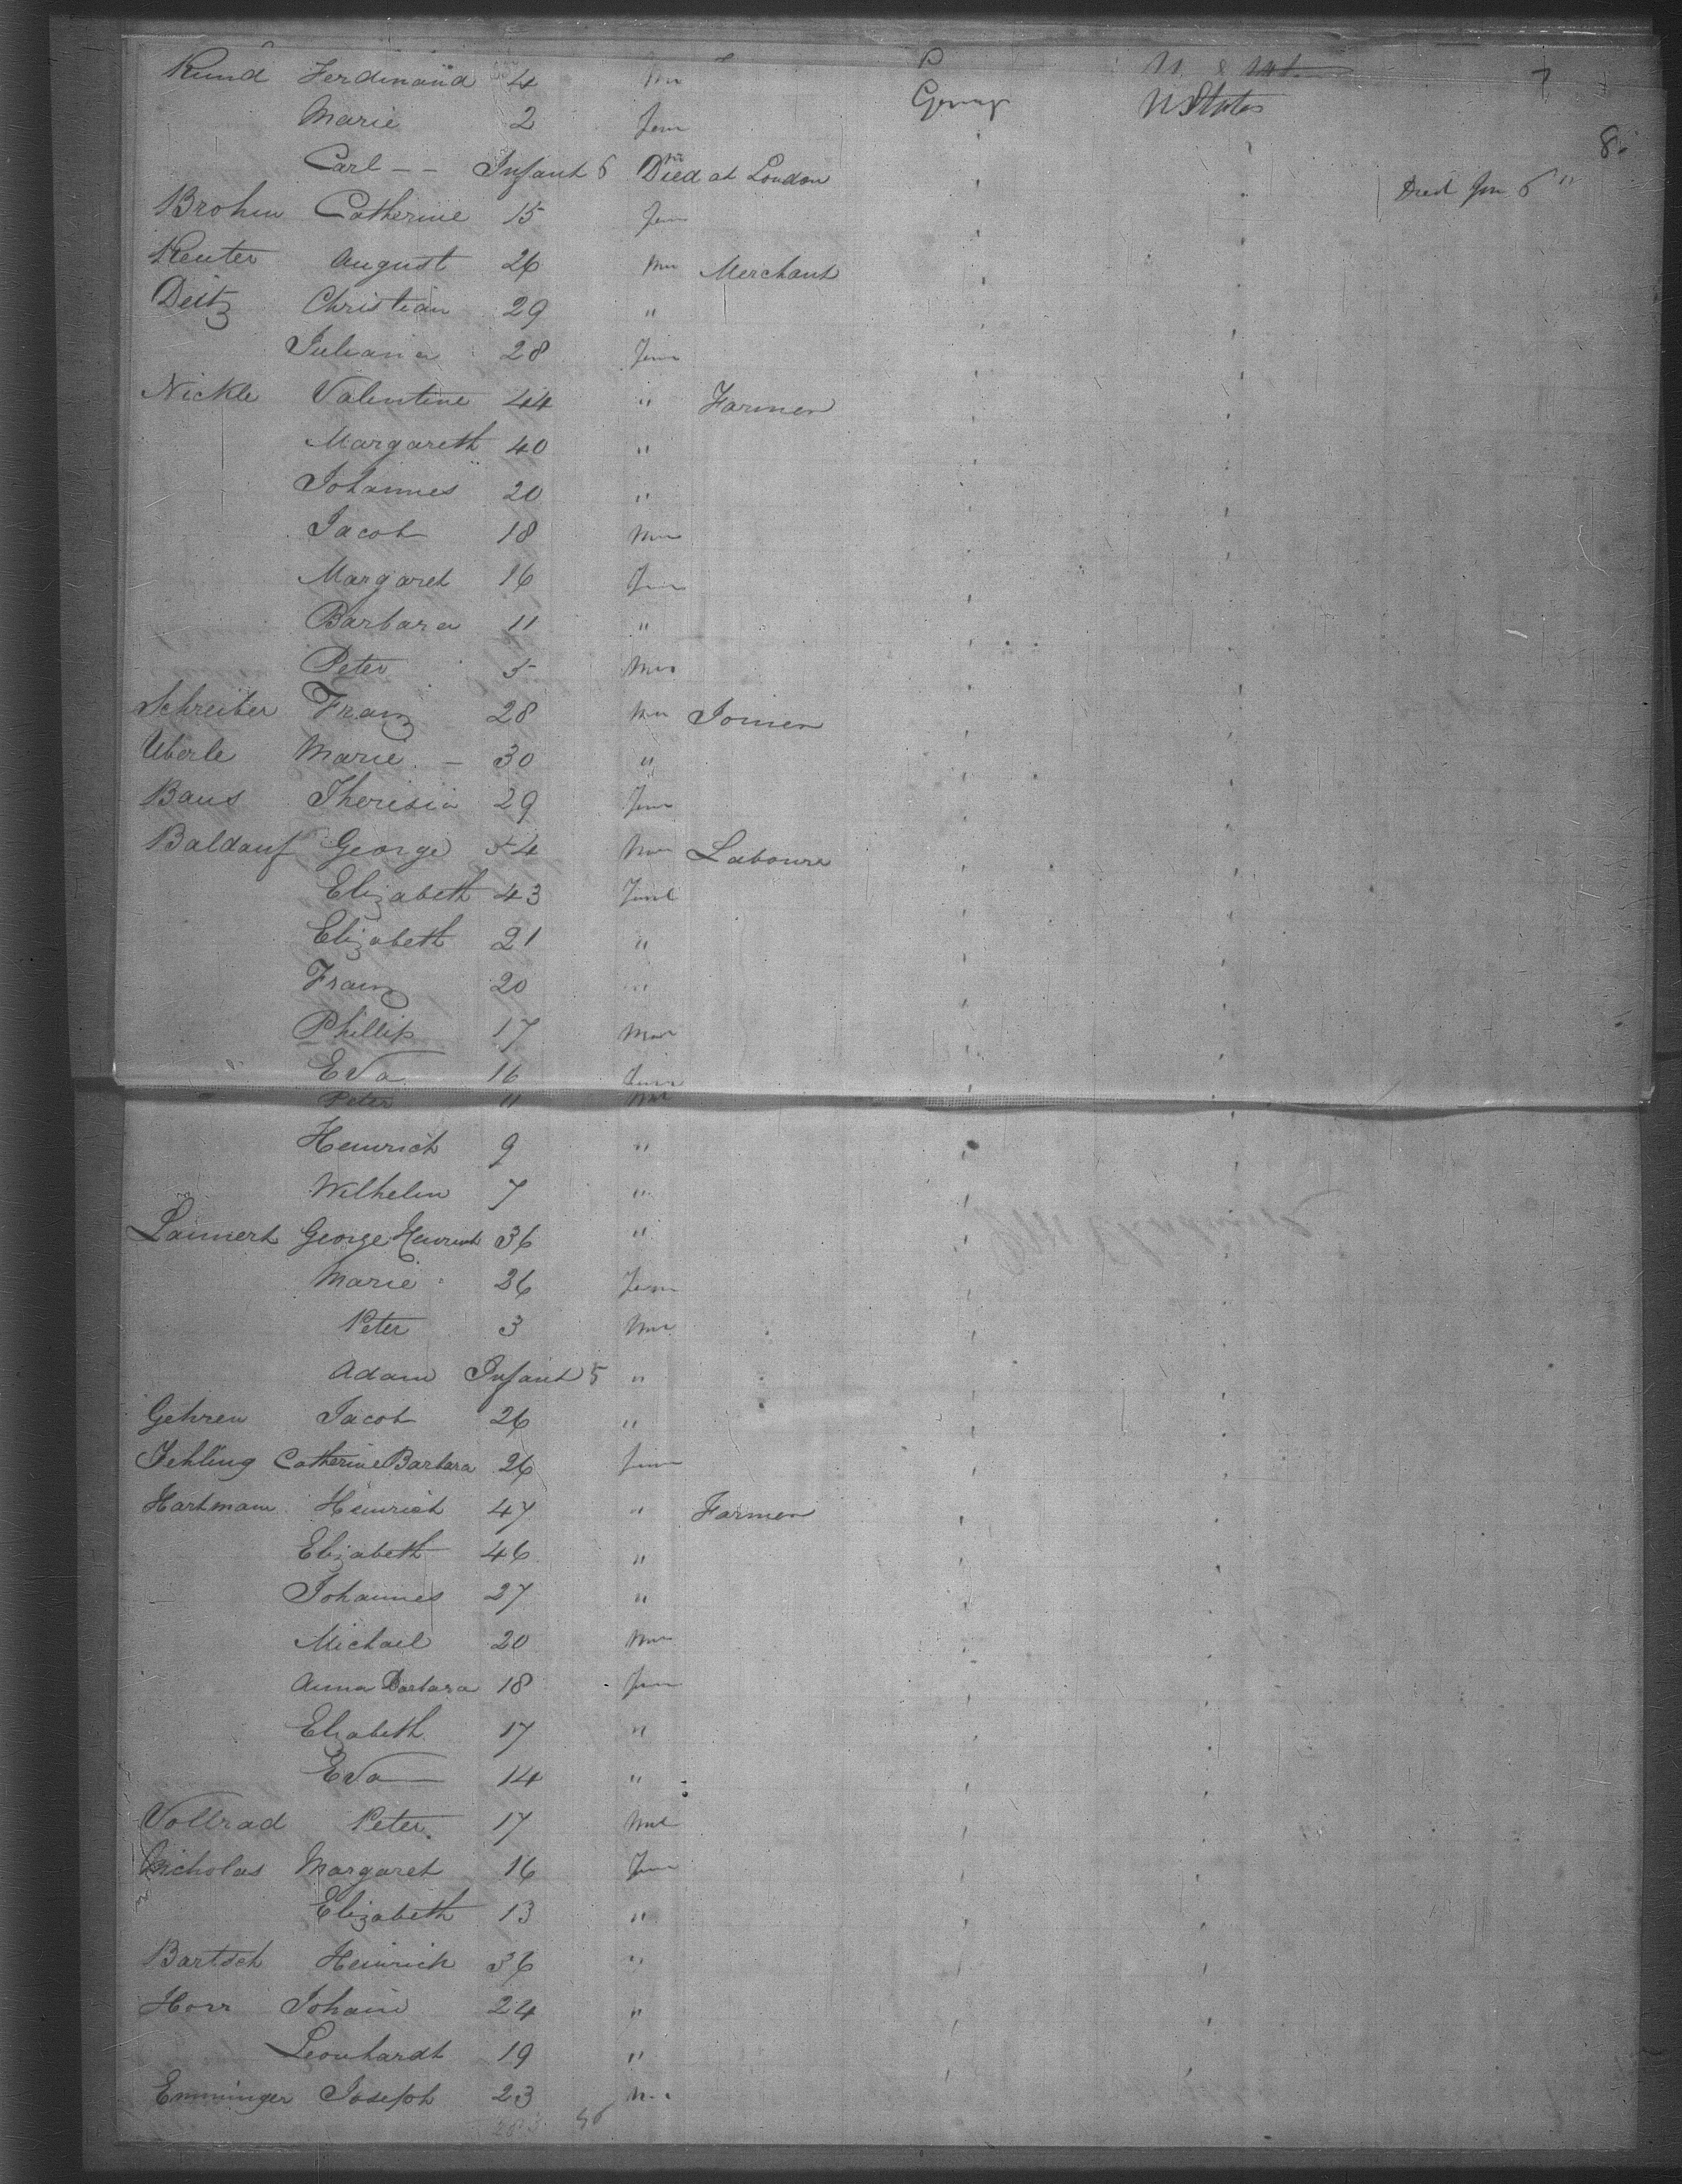 Kund Ferdinand 4
7
Marie 2 Fem Germy U States
8.
Carl -- Infant 6 Died at London Died Jan 6"
Brohm Catherine 15 Fem
Reuter August 26 Mn Merchant
Deitz Christian 29 "
Juliana 28 Fem
Nickle Valentine 44 " Farmer
Margareth 40 "
Johannes 20 "
Jacob 18 Mn
Margaret 16 Fem
Barbara 11 "
Peter 5 Mn
Schreiber Franz 28 Mn Joiner
Uberle Marie - 30 "
Baus Theresia 29 Fem
Baldauf George 54 Mn Laboure
Elizabeth 43 Feml
Elizabeth 21 "
Franz 20 "
Phillip 17 Mn
Eva 16 Fem
Peter 11 Ml
Heinrich 9 "
Wilhelm 7 "
Laimert George Heinrich 36 "
Marie 26 Fem
Peter 3 Mn
Adam Infant 5 "
Gehren Jacob 26 "
Fehling Catherine Barbara 26 Fem
Hartmann Heinrich 47 " Farmer
Elizabeth 46 "
Johannes 27 "
Michael 20 Mn
Anna Barbara 18 Fem
Elizabeth 17 "
Eva 14 "
Vollrad Peter 17 Ml
Nicholas Margaret 16 Fem
Elizabeth 13 "
Bartsch Heinrich 36 "
Horr Johann 24 "
Leonhardt 19 "
Emminger Joseph 23